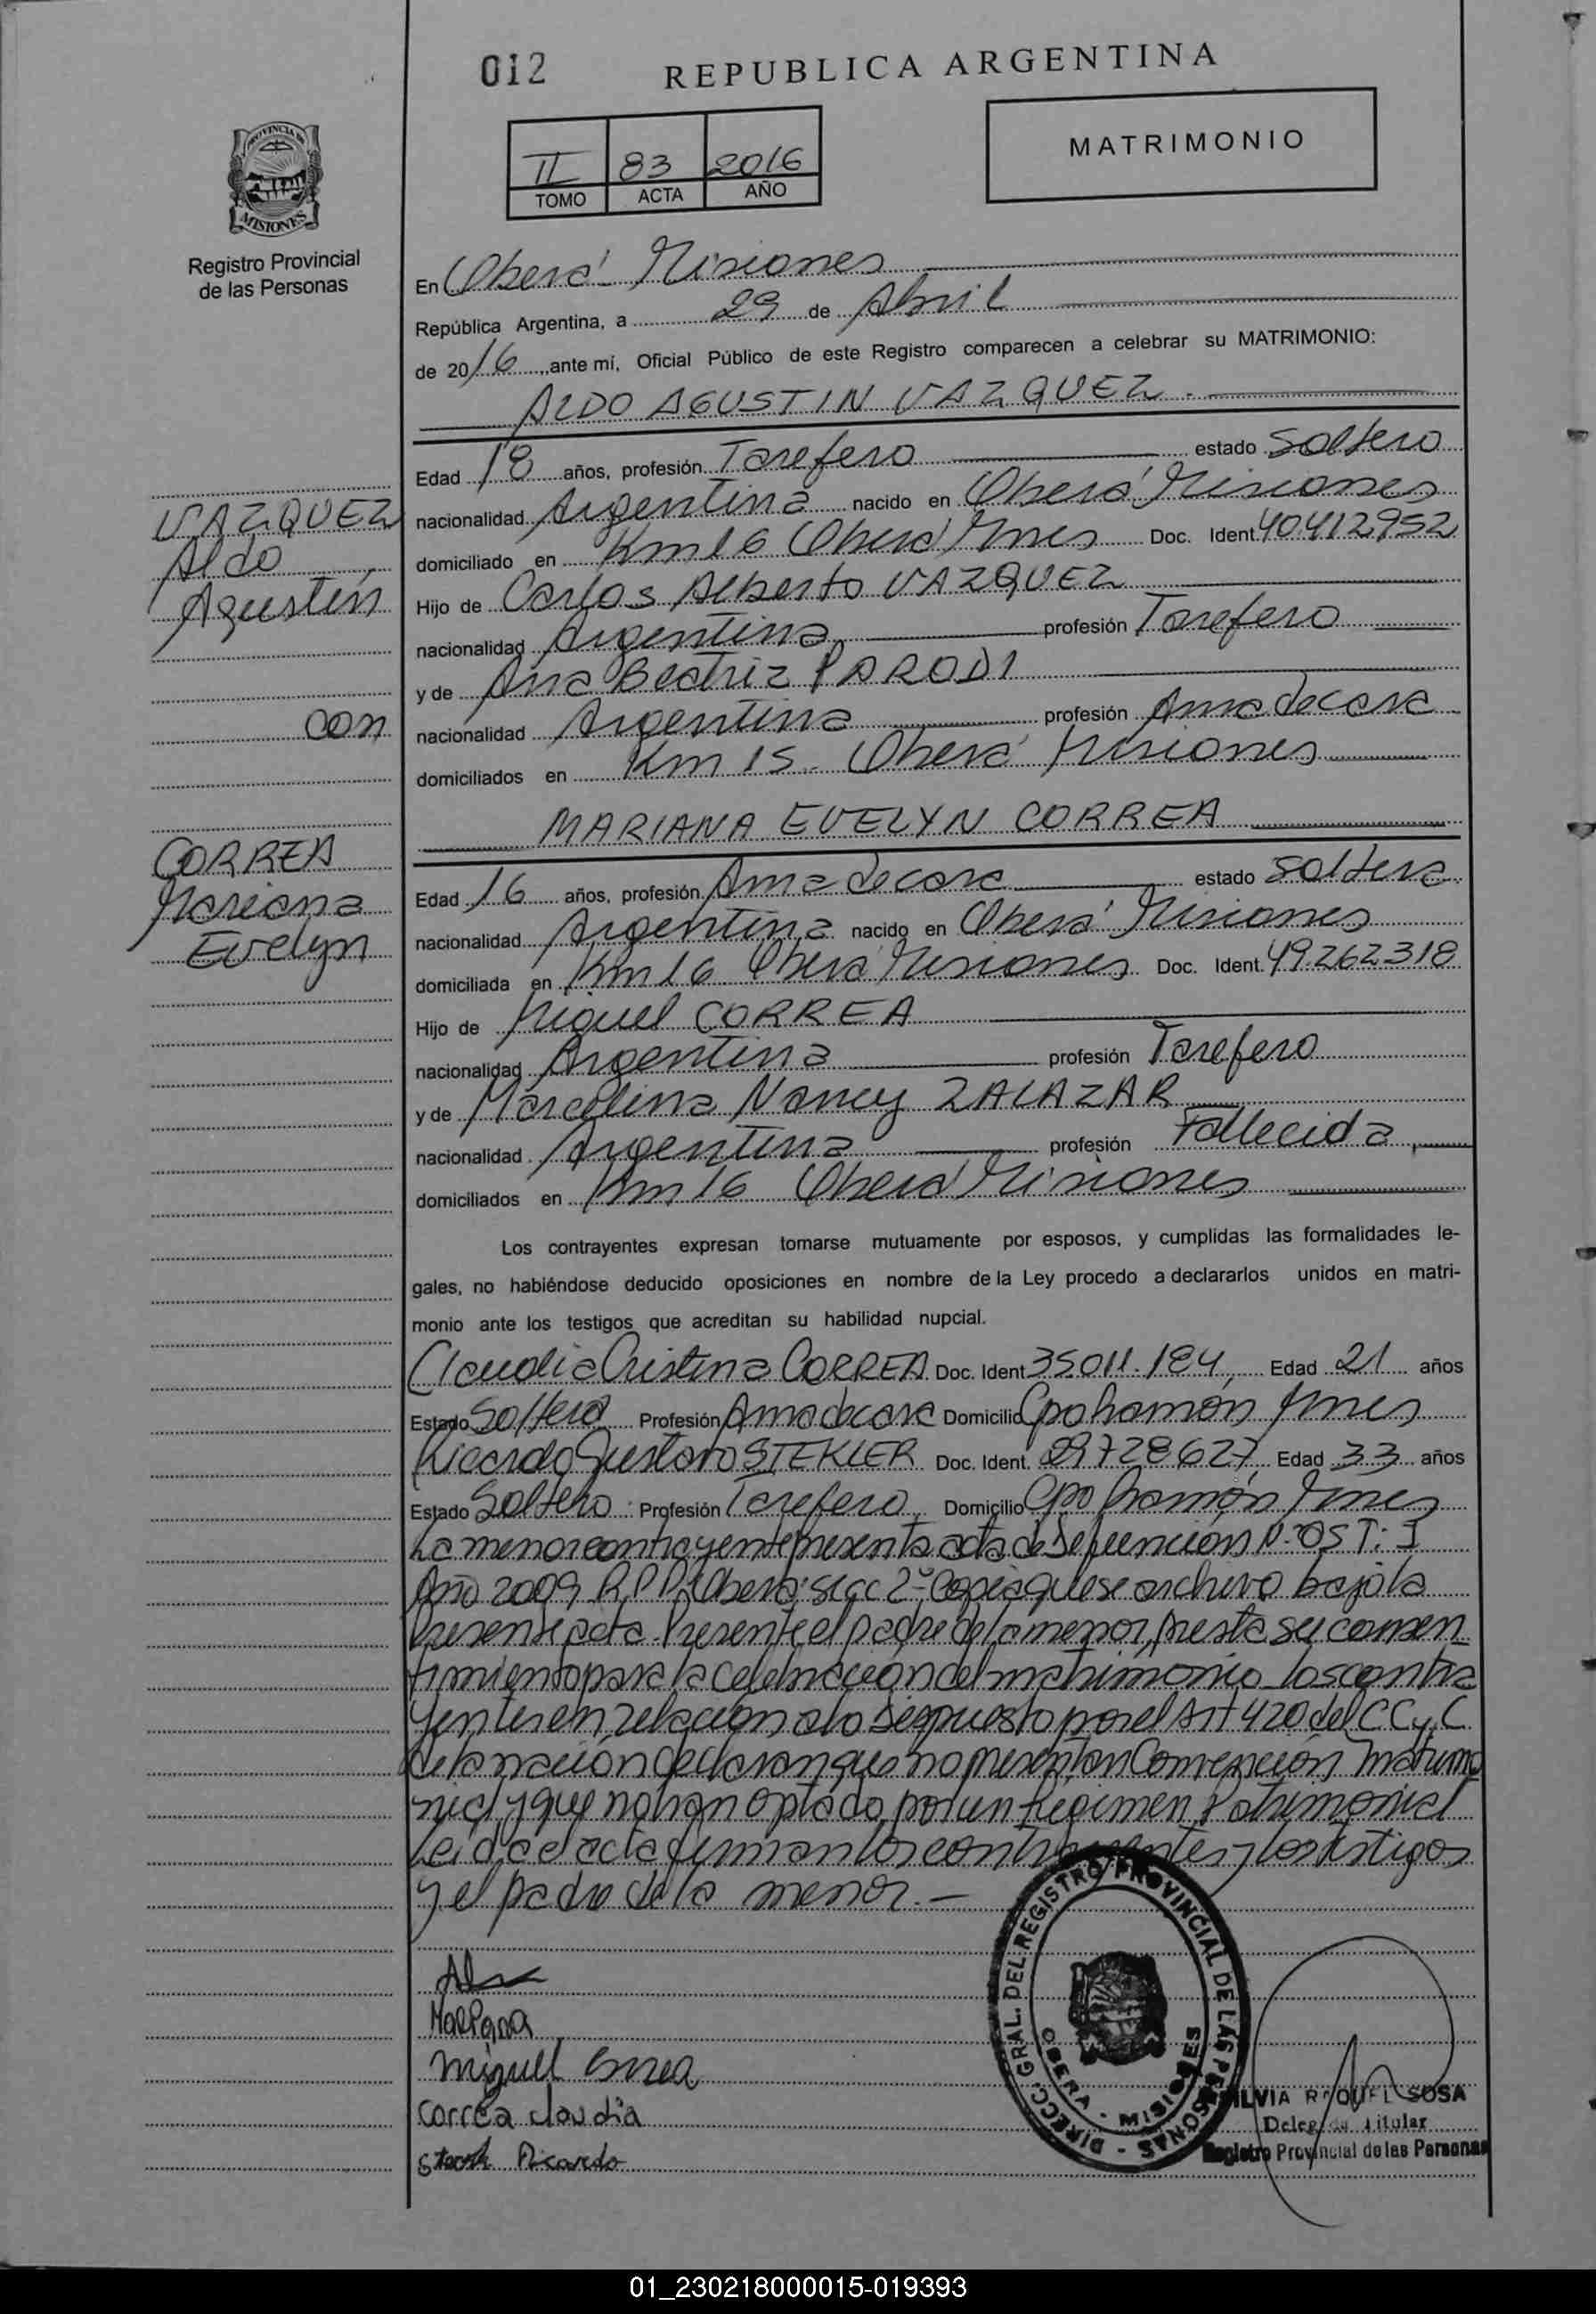 012
REPUBLICA ARGENTINA
MATRIMONIO
II 83 2016
TOMO ACTA AÑO
PROVINCIA DE MISIONES
Registro Provincial
de las Personas
En Oberá Misiones
República Argentina, a 29 de Abril
de 2016, ante mí, Oficial Público de este Registro comparecen a celebrar su MATRIMONIO:
ALDO AGUSTIN VAZQUEZ.
Edad 18 años, profesión Tarefero estado Soltero
nacionalidad Argentina nacido en Oberá Misiones
domiciliado en Km 16 Oberá Mnes Doc. Ident. 40.412.952
Hijo de Carlos Alberto VAZQUEZ
nacionalidad Argentina profesión Tarefero
y de Ana Beatriz PARODI
nacionalidad Argentina profesión Ama de casa
domiciliados en Km 15. Oberá Misiones
VAZQUEZ
Aldo
Agustín
con
CORREA
Mariana
Evelyn
MARIANA EVELYN CORREA
Edad 16 años, profesión Ama de casa estado Soltera
nacionalidad Argentina nacido en Oberá Misiones
domiciliada en Km 16 Oberá Misiones Doc. Ident. 49.262.318
Hijo de Miguel CORREA
nacionalidad Argentina profesión Tarefero
y de Marcelina Nancy ZALAZAR
nacionalidad Argentina profesión Fallecida
domiciliados en Km 16 Oberá Misiones
Los contrayentes expresan tomarse mutuamente por esposos, y cumplidas las formalidades le-
gales, no habiéndose deducido oposiciones en nombre de la Ley procedo a declararlos unidos en matri-
monio ante los testigos que acreditan su habilidad nupcial.
Claudia Cristina CORREA Doc. Ident 35.011.184, Edad 21 años
Estado Soltera Profesión Ama de casa Domicilio Cpo Ramón Mnes
Ricardo Gustavo STEKLER Doc. Ident. 29728627, Edad 33 años
Estado Soltero Profesión Tarefero Domicilio Cpo Ramón Mnes
La menor contrayente presenta acta de Defunción N: 05 T: I
Año 2009 R.P.P. Oberá secc 2º Copia que se archiva bajo la
presente acta. Presente el padre de la menor, presta su consen
timiento para la celebración del matrimonio los contra
yentes en relación a lo Dispuesto por el Art 420 del C C y C
de la nación declaran que no presentan Convención matrimo
nial y que no han optado por un Regimen Patrimonial
Leida el acta firman los contrayentes y los testigos
y el padre de la menor.-
Mariana
Miguel Correa
Correa Claudia
Ricardo
DIRECC. GRAL. DEL REGISTRO PROVINCIAL DE LAS PERSONAS
OBERA - MISIONES
SILVIA RAQUEL SOSA
Delegada Titular
Registro Provincial de las Personas
01_230218000015-019393